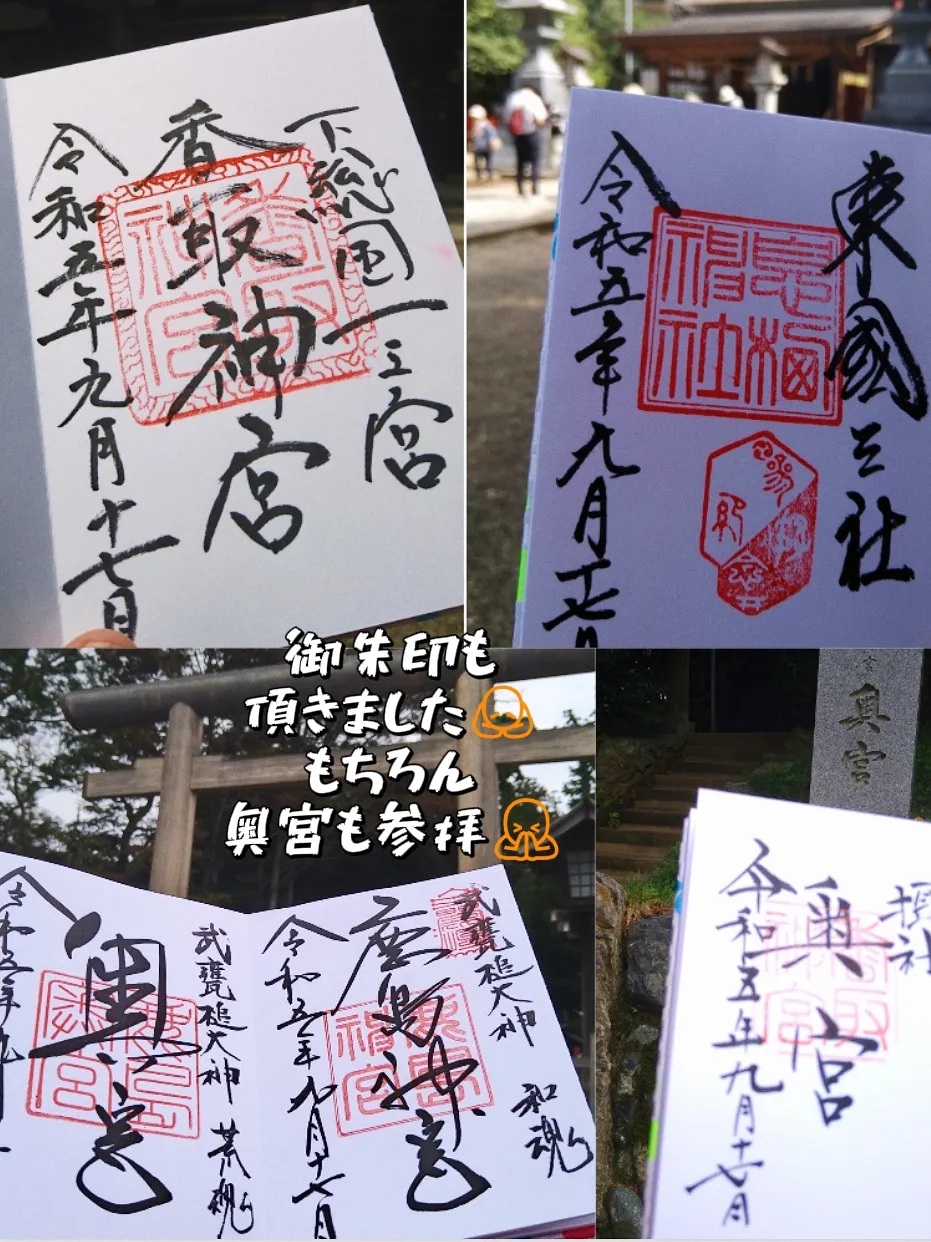 下総国一之宮
香取神宮
令和五年九月十七日
香取神宮
東國三社
令和五年九月十七日
息栖神社
御朱印も
頂きました
もちろん
奥宮も参拝
武甕槌大神 和魂
鹿島神宮
令和五年九月十七日
鹿島神宮
武甕槌大神 荒魂
奥宮
令和五年九
奥宮
摂社
奥宮
令和五年九月十七日